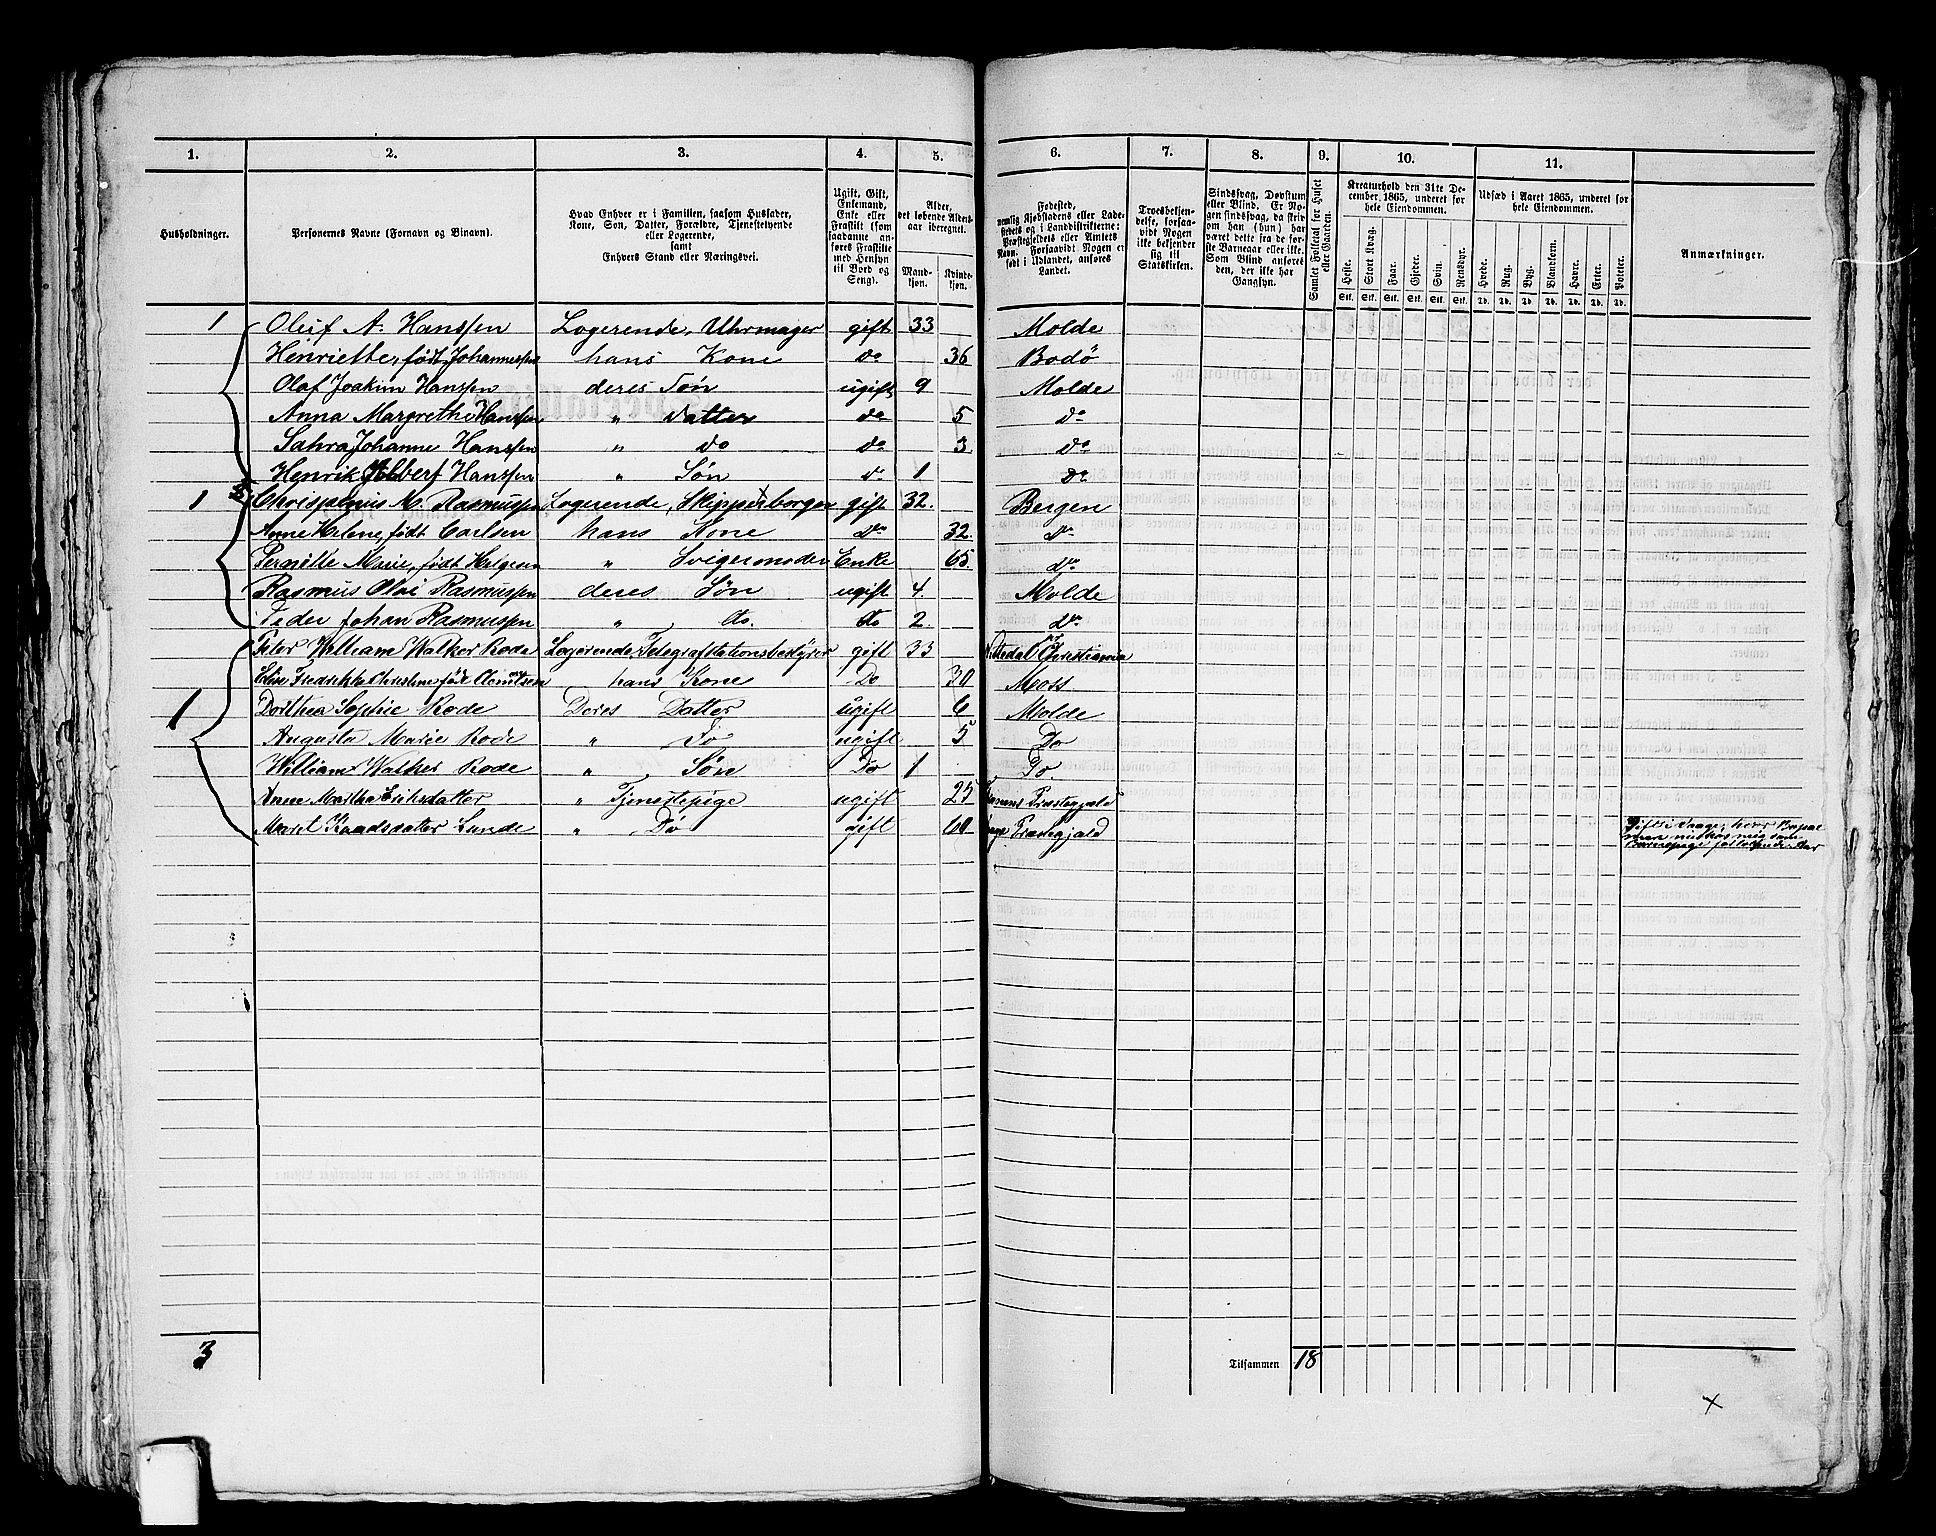 1. 2. 3. 4. 5. 6. 7. 8. 9. 10. 11.
Husholdninger.
Personernes Navne (Fornavn og Binavn).
Hvad Enhver er i Familien, saasom Husfader,
Kone, Søn, Datter, Forældre, Tjenestetyende
eller Logerende,
samt
Enhvers Stand eller Næringsvei.
Ugift, Gift,
Enkemand,
Enke eller
Fraskilt (som
saadanne an-
føres Fraskilte
med Hensyn
til Bord og
Seng).
Alder,
det løbende Alders-
aar iberegnet.
Mand-
kjøn.
Kvinde-
kjøn.
Fødested,
nemlig Kjøbstadens eller Lade-
stedets og i Landdistrikterne:
Præstegjeldets eller Amtets
Navn. Forsaavidt Nogen er
født i Udlandet, anføres
Landet.
Troesbekjen-
delse, forsaa-
vidt Nogen
ikke bekjender
sig til
Statskirken.
Sindssvag, Døvstum
eller Blind. Er No-
gen sindssvag, da skriv
om han (hun) har
været dette fra de før-
ste Barneaar eller ikke.
Som Blind anføres
den, der ikke har
Gangsyn.
Samlet Folketal for Huset
eller Gaarden.
Kreaturhold den 31te De-
cember 1865, underet for
hele Eiendommen.
Heste. Stort Kvæg. Faar. Gjeder. Svin. Rensdyr.
Stk. Stk. Stk. Stk. Stk. Stk.
Udsæd i Aaret 1865, underet for
hele Eiendommen.
Hvede. Rug. Byg. Blandkorn. Havre. Erter. Poteter.
Td. Td. Td. Td. Td. Td. Td.
Anmærkninger.
1 Oluf A. Hanssen Logerende, Uhrmager gift 33 Molde
Henriette, født Johannessen hans Kone do 36 Bodø
Olaf Joakim Hanssen deres Søn ugift 9 Molde
Anna Margrethe Hanssen " Datter do 5 do
Sahra Johanne Hanssen " do do 3 do
Henrik Albert Hanssen " Søn do 1 do
1 M. Rasmussen Logerende, Skipperborger gift 32. Bergen
Anne Helene, født Carlsen hans Kone Do 32. Do
Pernille Marie, født Helgesen " Svigermoder Enke 65 do
Rasmus Olai Rasmussen deres Søn ugift 4. Molde
Peder Johan Rasmussen " do. do 2. do
1 Peter William Walker Rode Logerende, Telegrafstationsbestyrer gift 33 Nittedal Christiania
Fredrikke Christine født hans Kone Do 30 Moss
Dorthea Sophie Rode Deres Datter ugift 6 Molde
Augusta Marie Rode " Do ugift 5 Do
William Walker Rode " Søn Do 1 Do.
Anne Martha Eriksdatter " Tjenestepige ugift 25 Præstegjæld
Marit Lunde " Do gift 60 Præstegjæld
3
Tilsammen 18